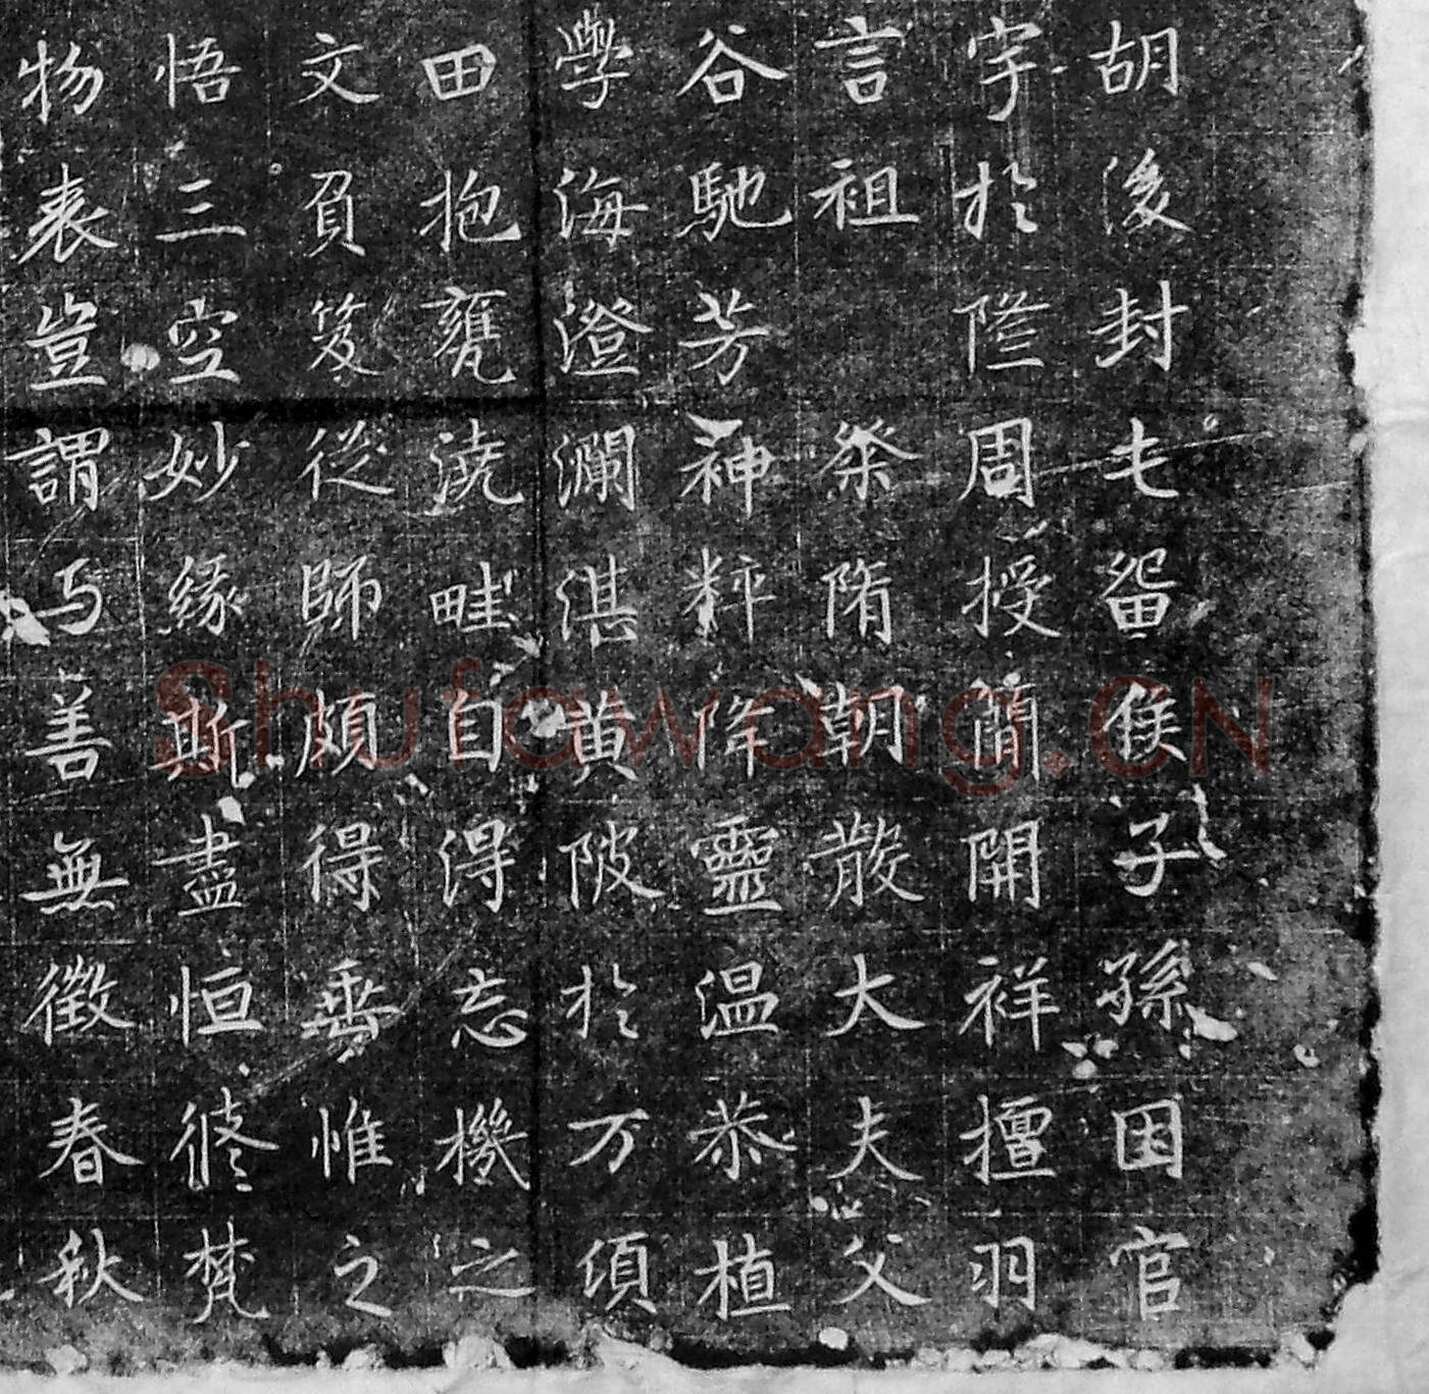 胡後封屯留侯子孫因官
宇於隆周授簡開祥擅羽
言祖 粲隋朝散大夫父
谷馳芳神粹降靈温恭植
學海澄瀾湛黄陂於万頃
田抱甕澆畦自得忘機之
文負笈從師頗得垂惟之
悟三空妙緣斯盡恒修梵
物表豈謂与善無徵春秋
Shufawang.CN